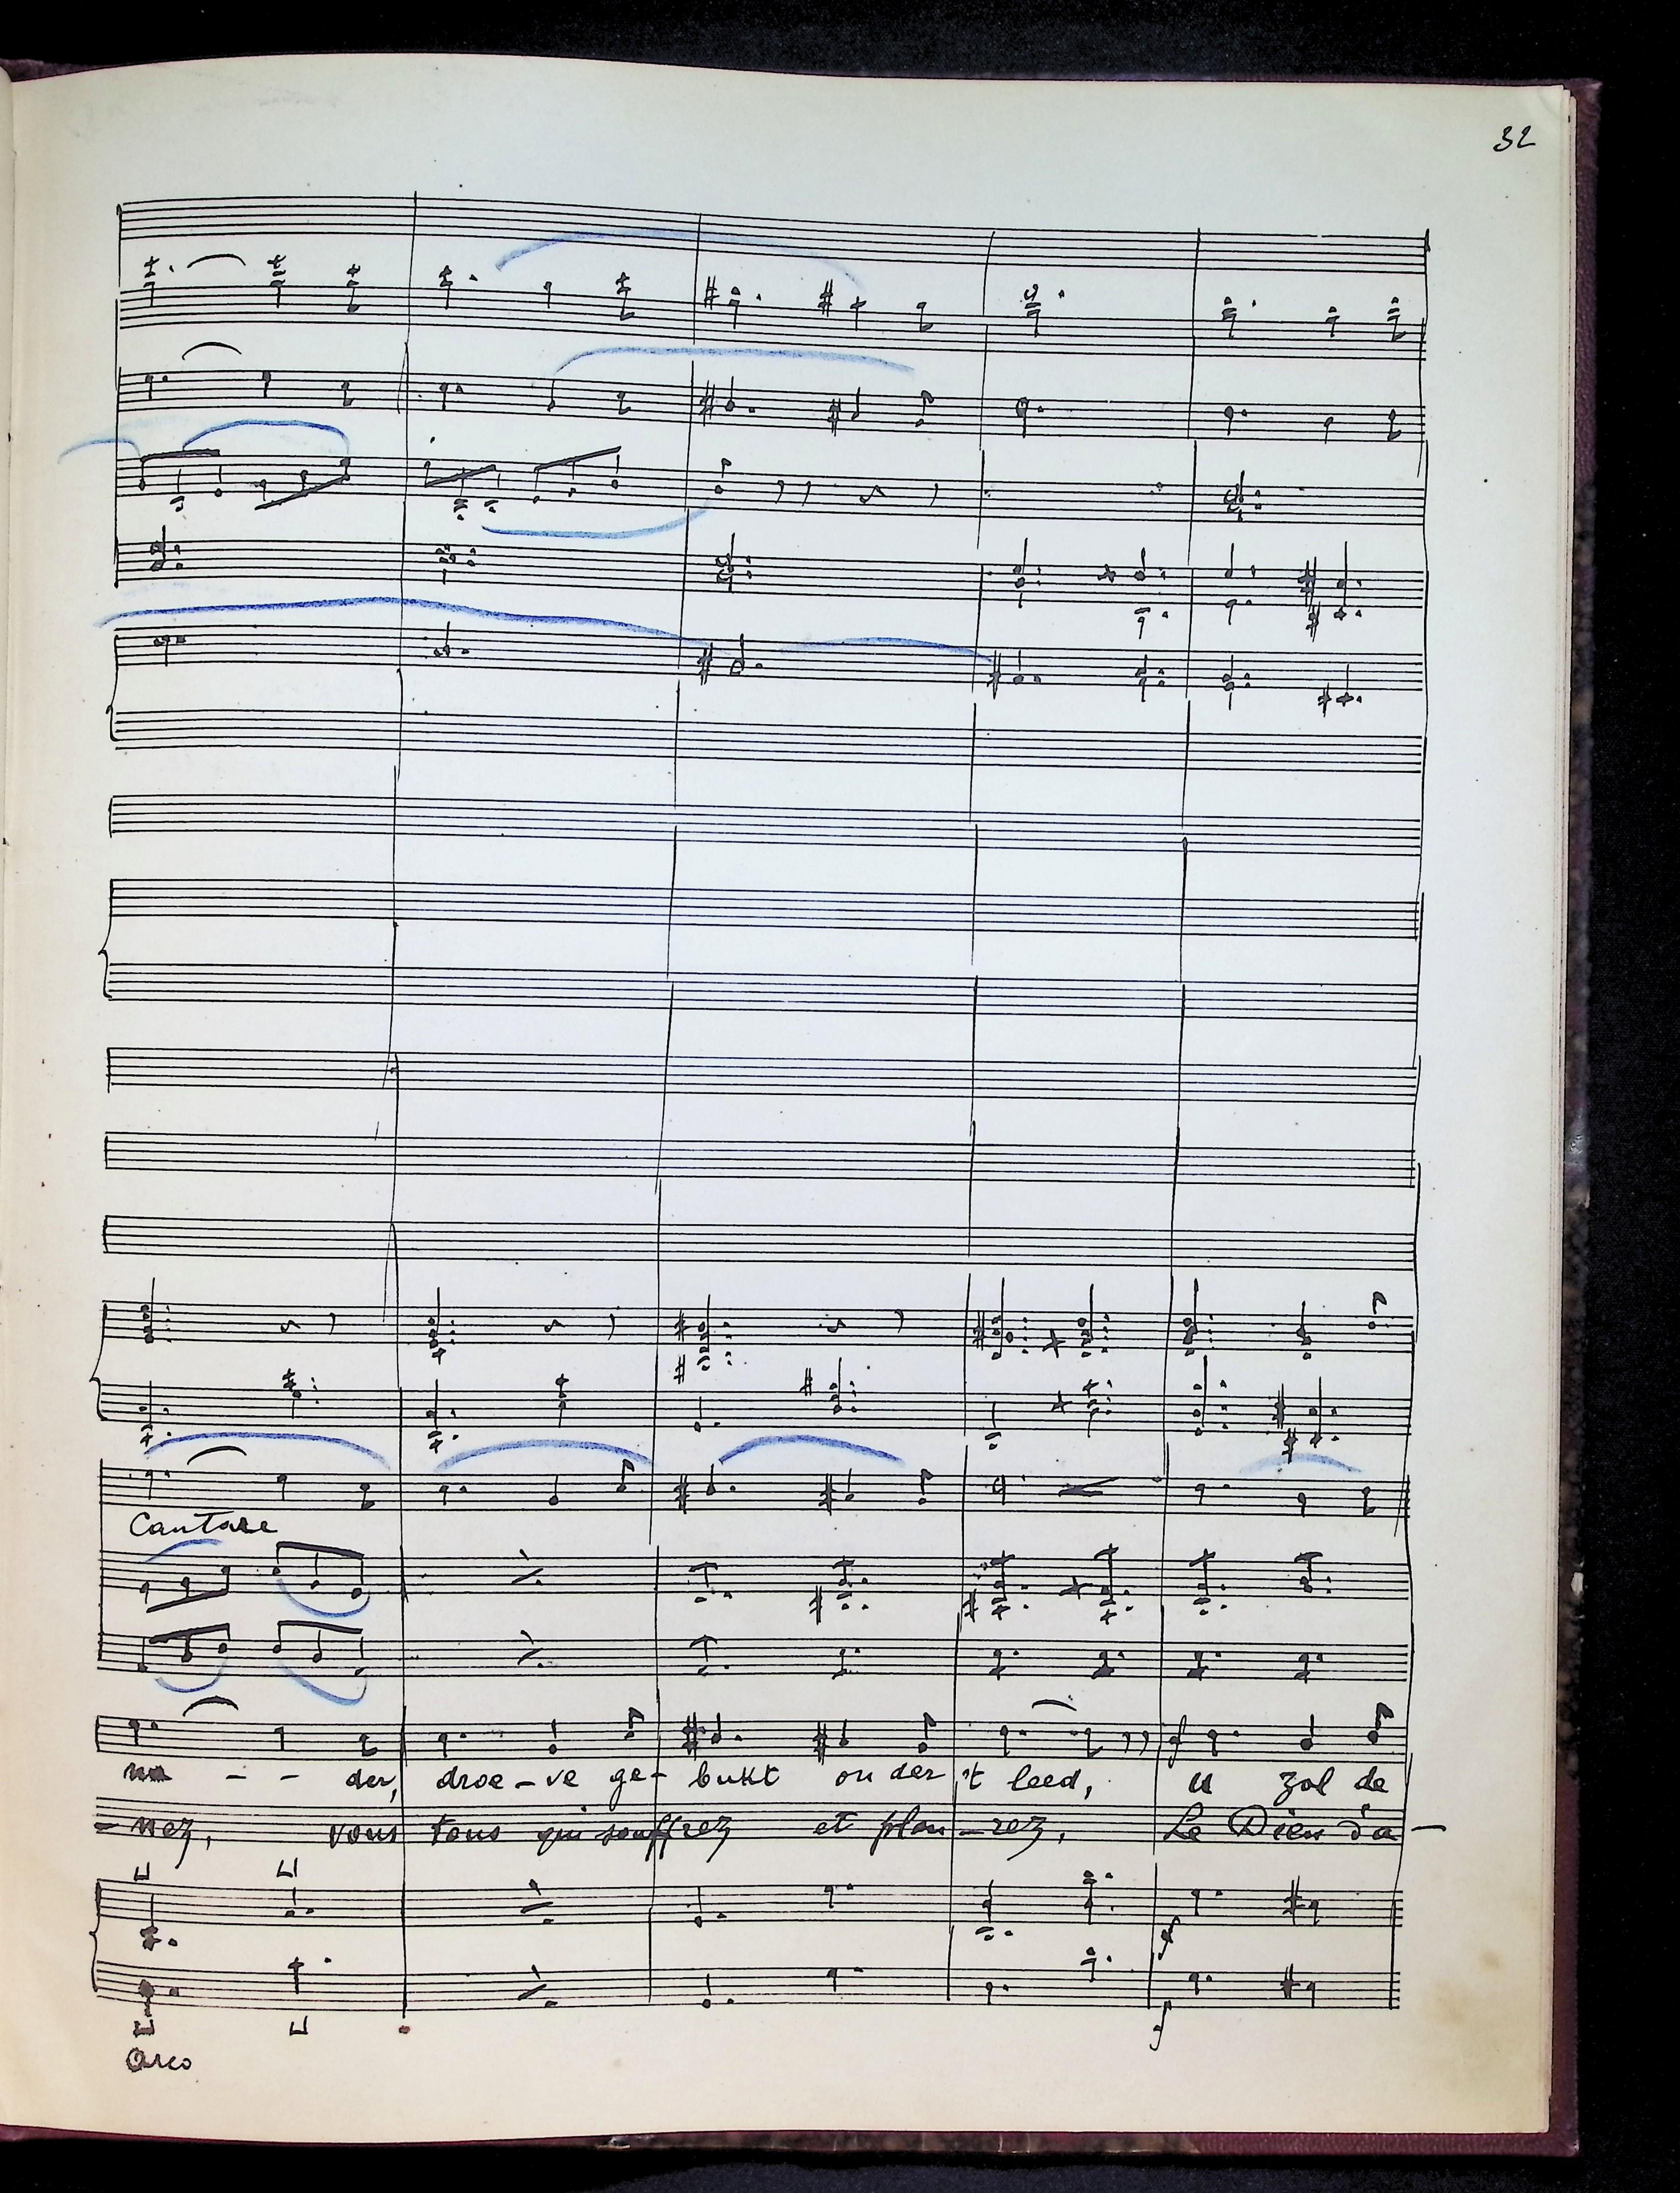 32
Cantare
na - - der, droe - ve ge - bukt on der 't leed, u zal de
- nez, vous tous qui souffrez et pleu - rez, Le Dieu d'a -
f
f
Arco